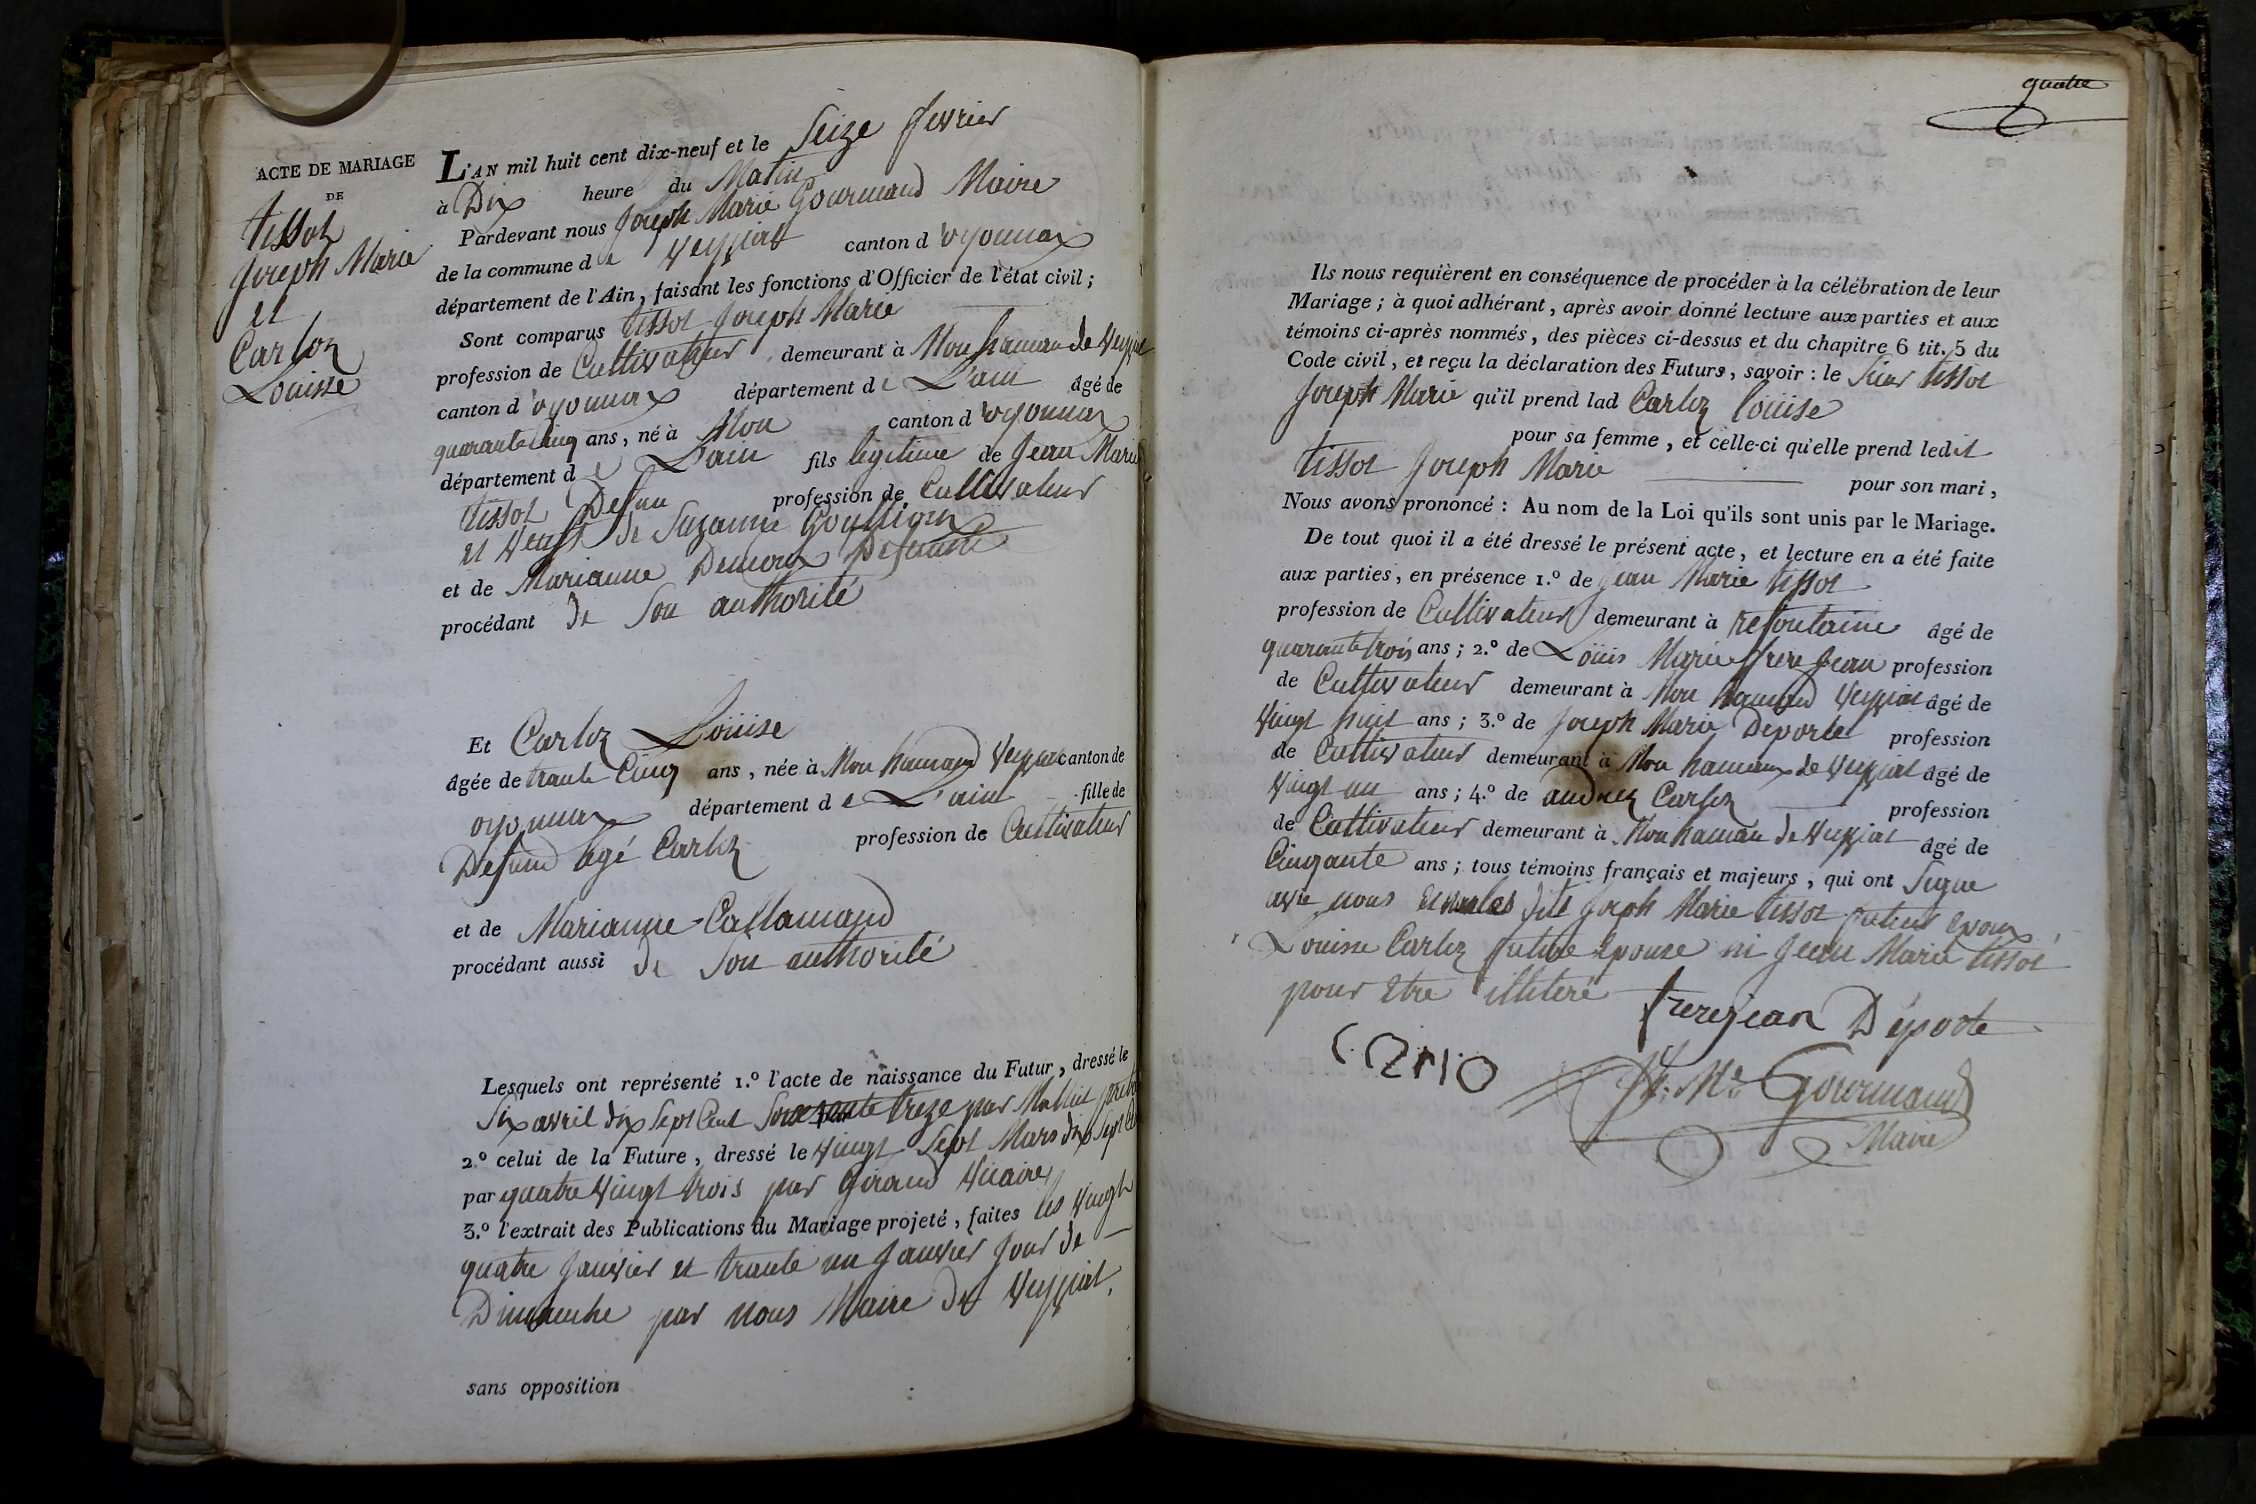 ACTE DE MARIAGE
DE
tissot
Joseph Marie
et
Carloz
Louisse
L'AN mil huit cent dix-neuf et le Seize fevrier
à Dix heure du Matin
Pardevant nous Joseph Marie Gourmand Maire
de la commune de Veyziat canton d'oyonnax
département de l'Ain, faisant les fonctions d'Officier de l'état civil;
Sont comparus tissot Joseph Marie
profession de Cultivateur demeurant à Mon hameau de Veyziat
canton d'oyonnax département de L'ain âgé de
quarante Cinq ans, né à Mon canton d'oyonnax
département de L'ain fils légitime de Jean Marie
tissot Defun profession de Cultivateur
et Veuf de Suzanne
et de Marianne Defunte
procédant de Son authorité
Et Carloz Loüise
âgée de trante Cinq ans, née à Mon hamaud Veyziat canton de
oyonnax département de L'ain fille de
Defund Carloz profession de Cultivateur
et de Marianne Callamand
procédant aussi de Son authorité
Lesquels ont représenté 1.º l'acte de naissance du Futur, dressé le
Six avril dix Sept Cent Soixante treze par
2.º celui de la Future, dressé le Vingt Sept Mars dix Sept
par quatre Vingt trois par Giraud Vicaire
3.º l'extrait des Publications du Mariage projeté, faites les Vingt
quatre Janvier et trante un Janvier Jour de
Dimanche par nous Maire de Veyziat.
sans opposition
quatre
Ils nous requièrent en conséquence de procéder à la célébration de leur
Mariage; à quoi adhérant, après avoir donné lecture aux parties et aux
témoins ci-après nommés, des pièces ci-dessus et du chapitre 6 tit. 5 du
Code civil, et reçu la déclaration des Futurs, savoir: le Sieur tissot
Joseph Marie qu'il prend lad Carloz Loüise
pour sa femme, et celle-ci qu'elle prend ledit
tissot Joseph Marie pour son mari,
Nous avons prononcé: Au nom de la Loi qu'ils sont unis par le Mariage.
De tout quoi il a été dressé le présent acte, et lecture en a été faite
aux parties, en présence 1.º de jean Marie tissot
profession de Cultivateur demeurant à refontaine âgé de
quarante trois ans; 2.º de Loüis Marie frere Jean profession
de Cultivateur demeurant à Mon hamaud Veyziat âgé de
Vingt huit ans; 3.º de Joseph Marie Deporte profession
de Cultivateur demeurant à Mon hameau de Veyziat âgé de
Vingt un ans; 4.º de Carloz profession
de Cultivateur demeurant à Mon hamau de Veyziat âgé de
Cinqante ans; tous témoins français et majeurs, qui ont Signe
avec nous dits Joseph Marie tissot futur epoux
Louisse Carloz future epouse ni Jean Marie tissot
pour Etre illiteré
frerejean Deporte
Jh. Me. Gourmand
Maire